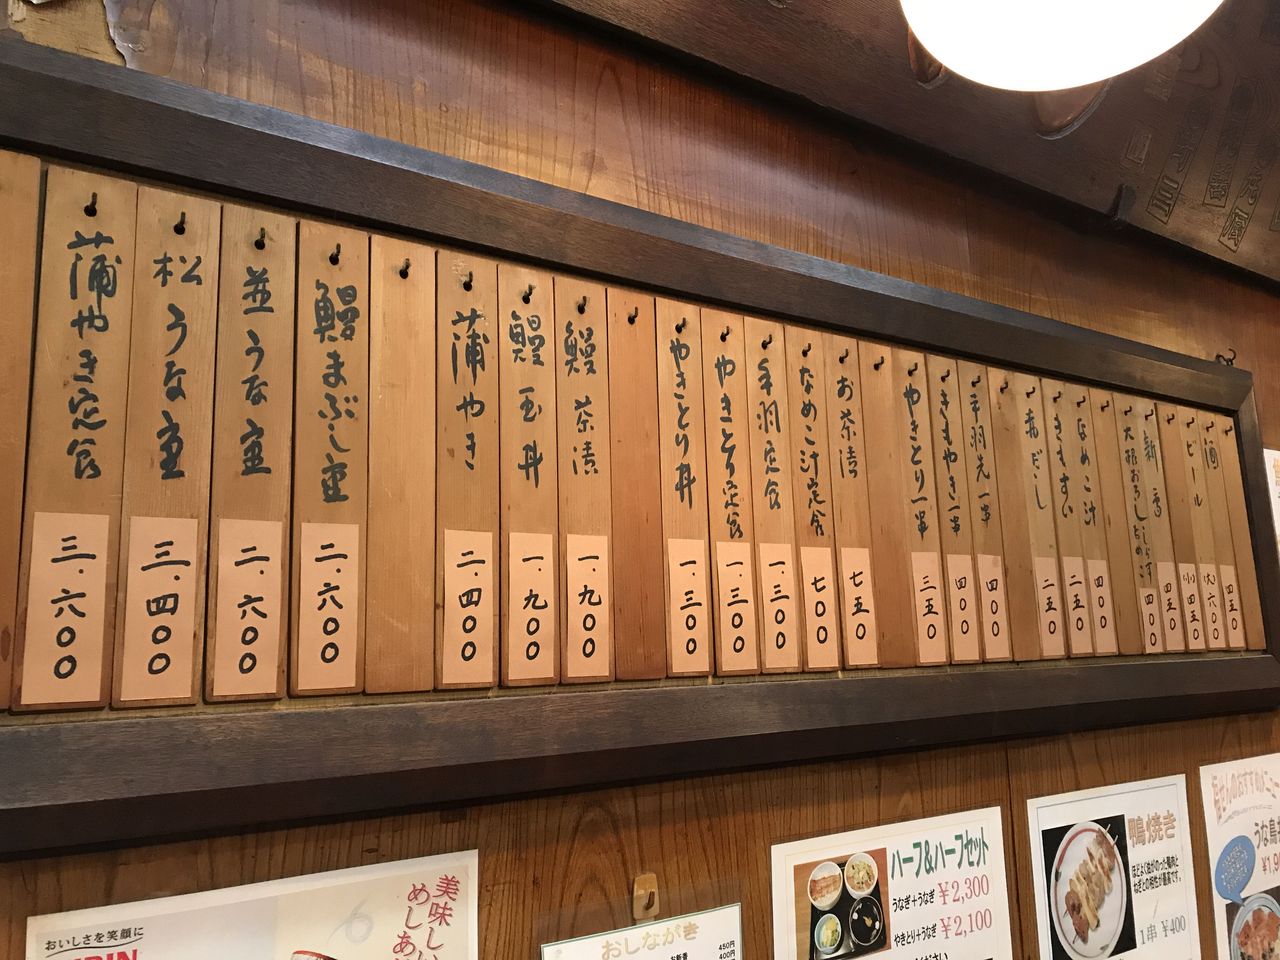 蒲やき定食
三.六〇〇
松うな重
三.四〇〇
並うな重
二.六〇〇
鰻まぶし重
二.六〇〇
蒲やき
二.四〇〇
鰻玉丼
一.九〇〇
鰻茶漬
一.九〇〇
やきとり丼
一.三〇〇
やきとり定食
一.三〇〇
手羽定食
一.三〇〇
なめこ汁定食
七〇〇
お茶漬
七五〇
やきとり一串
三五〇
きもやき一串
四〇〇
手羽先一串
四〇〇
赤だし
二五〇
きもすい
二五〇
なめこ汁
四〇〇
大根おろし
しらす
なめこ
四〇〇
新香
四五〇
ビール
小四五〇
大六〇〇
酒
四五〇
おいしさを笑顔に
KIRIN
美味しい
めしあ
おしながき
お新香
450円
400円
ハーフ&ハーフセット
うなぎ+うなぎ ¥2,300
やきとり+うなぎ ¥2,100
鴨焼き
ほどよく油がのった鴨肉と
ねぎとの相性が最高です。
1串 ¥400
のおすすめメニュー
うな鳥